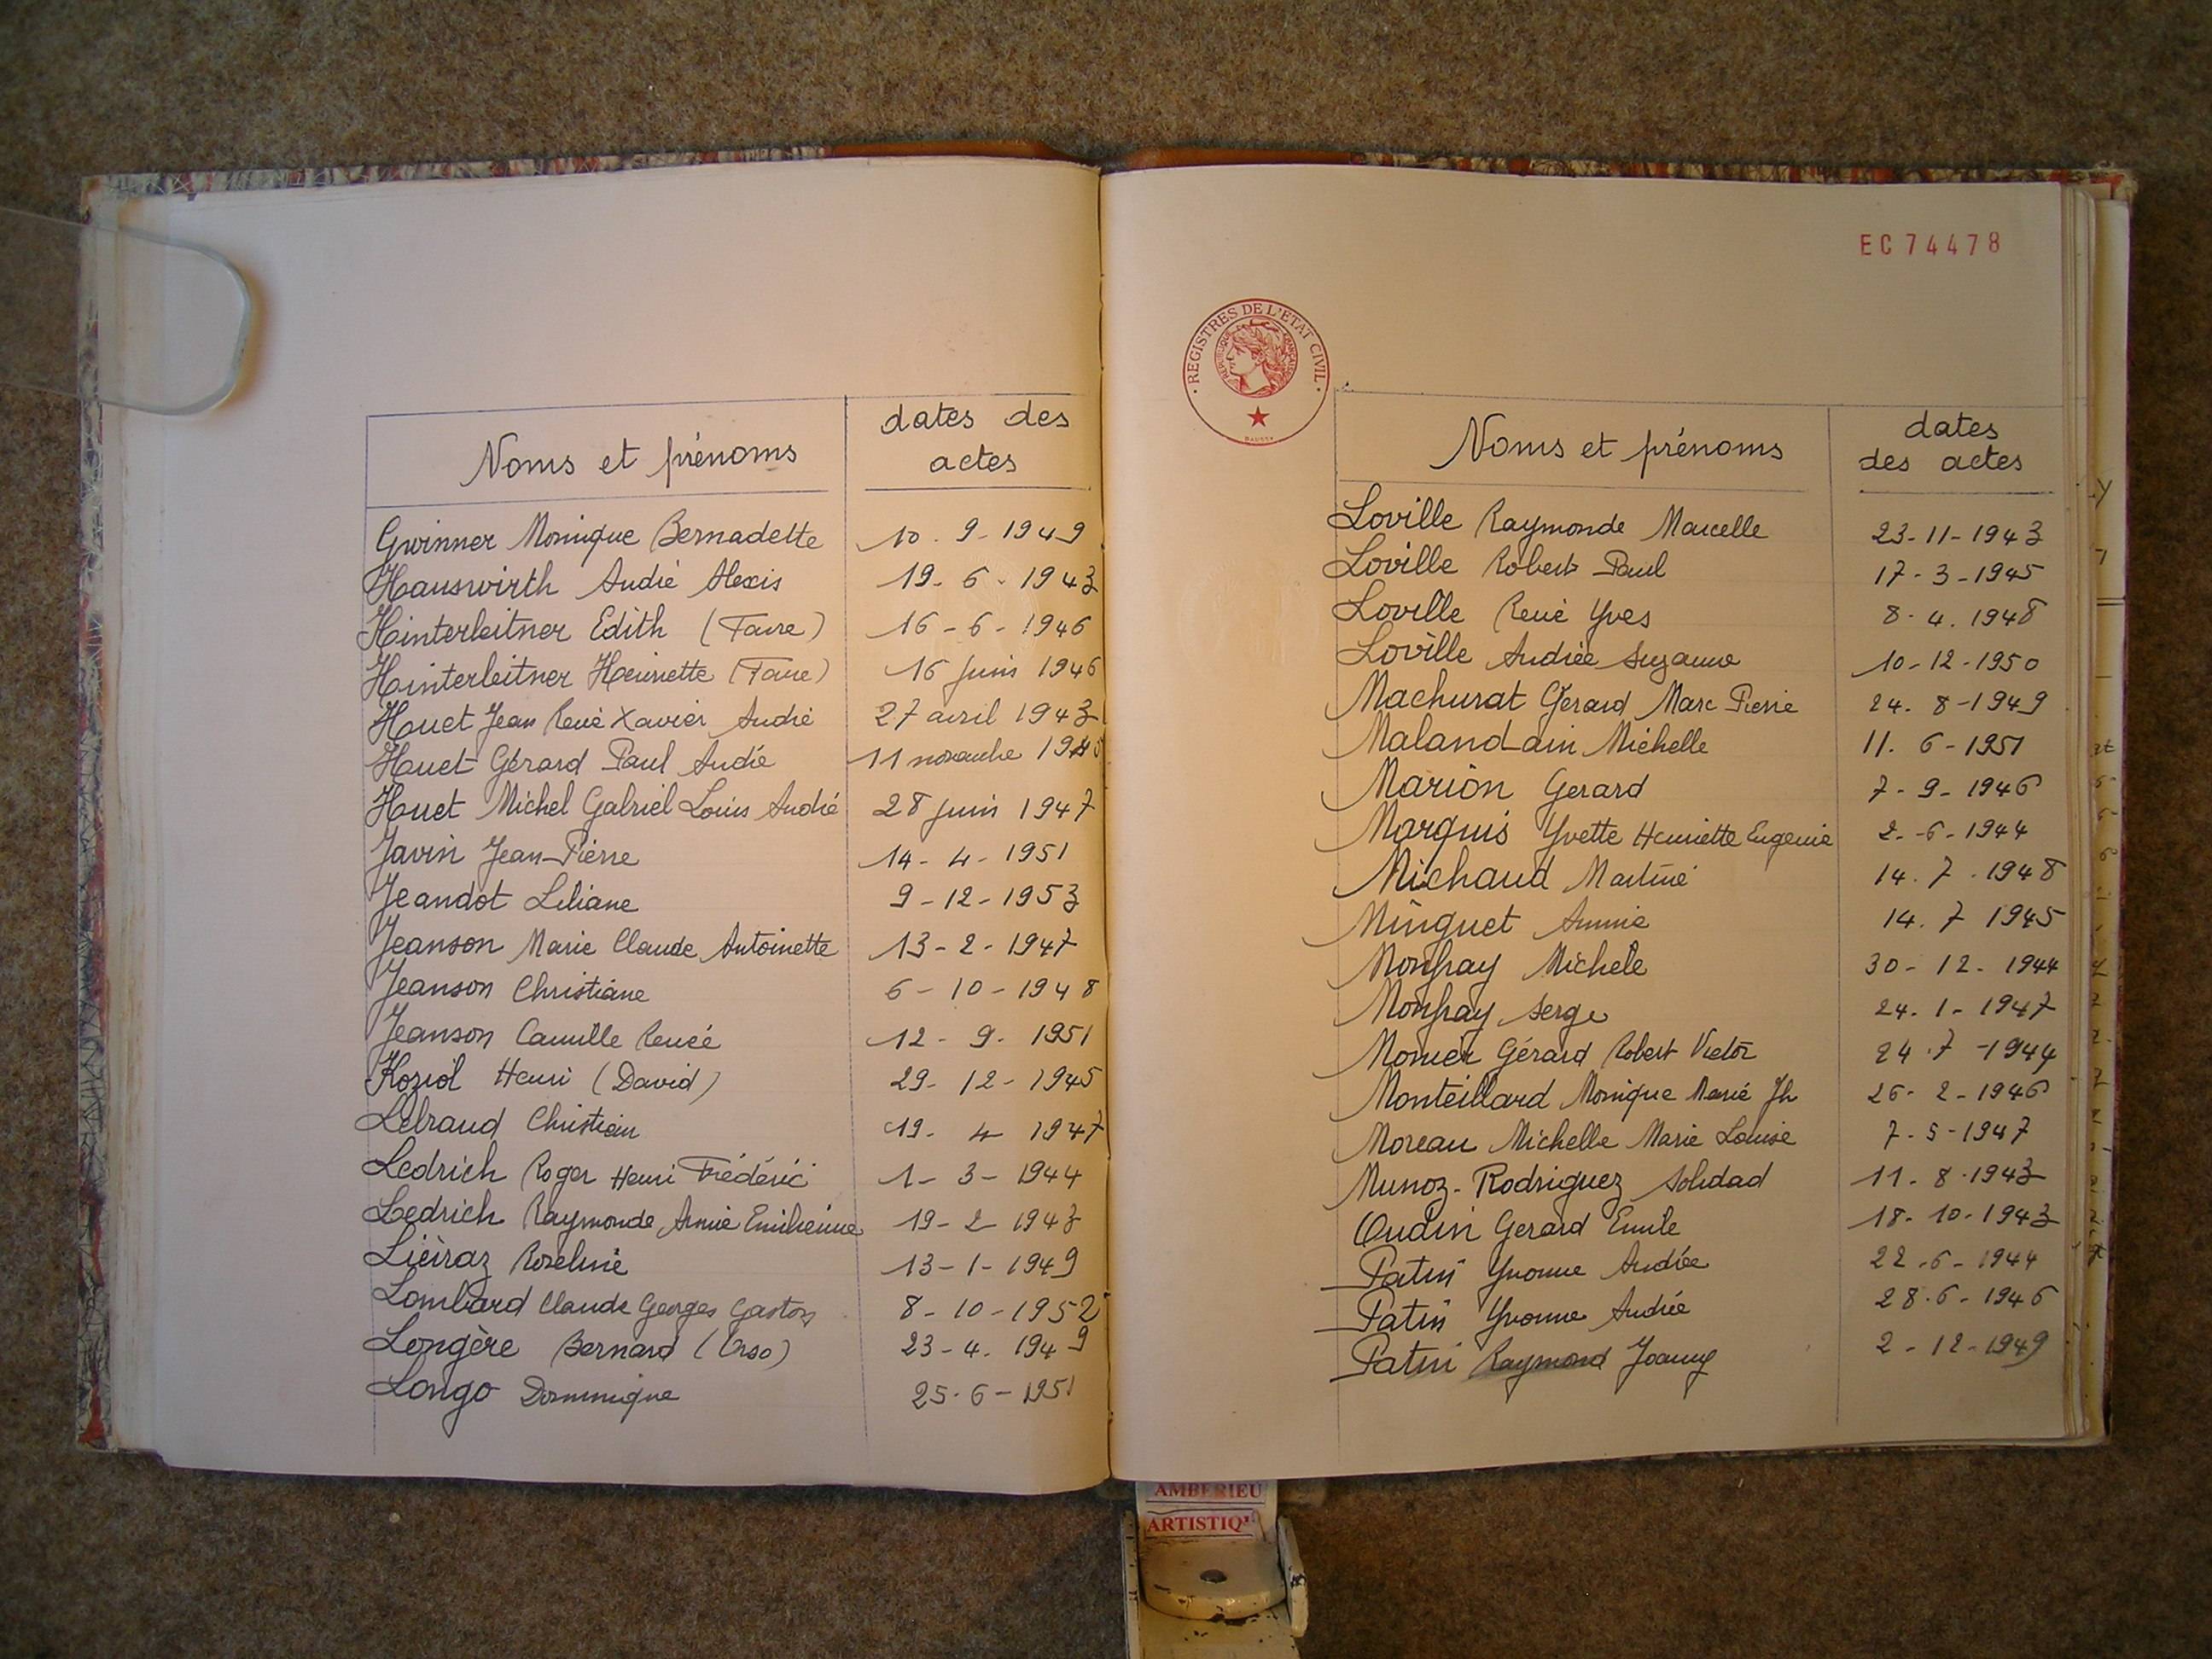 Noms et prénoms dates des actes
Gwinner Monique Bernadette 10.9-1949
Hauswirth André Alexis 19-6-1943
Hinterleitner Edith (Favre) 16-6-1946
Hinterleitner Henriette (Favre) 16 juin 1946
Huet Jean René Xavier André 27 avril 1943
Huet Gérard Paul André 11 novembre 1945
Huet Michel Gabriel Louis André 28 juin 1947
Javin Jean-Pierre 14-4-1951
Jeandot Liliane 9-12-1953
Jeanson Marie Claude Antoinette 13-2-1947
Jeanson Christiane 6-10-1948
Jeanson Camille Renée 12-9-1951
Koziol Henri (David) 29-12-1945
Lebraud Christian 19-4 1947
Ledrich Roger Henri Frédéric 1-3-1944
Ledrich Raymonde Annie Emilienne 19-2 1943
Liévraz Roseline 13-1-1949
Lombard Claude Georges Gaston 8-10-1952
Longère Bernard (Orso) 23-4.1949
Longo Dominique 25.6-1951
EC 74478
REGISTRES DE L'ETAT CIVIL
REPUBLIQUE FRANÇAISE
Noms et prénoms dates des actes
Loville Raymonde Marcelle 23-11-1943
Loville Robert Paul 17-3-1945
Loville René Yves 8.4.1948
Loville Andrée Suzanne 10-12-1950
Machurat Gérard Marc Pierre 24.8-1949
Malandain Michelle 11.6-1951
Marion Gerard 7-9-1946
Marquis Yvette Henriette Eugenie 2.-6-1944
Michaud Martine 14.7.1948
Minguet Annie 14.7 1945
Monfray Michele 30-12-1944
Monfray Serge 24.1-1947
Monier Gérard Robert Victor 24.7-1944
Monteillard Monique Marie Jh 26-2-1946
Moreau Michelle Marie Louise 7-5-1947
Munoz-Rodriguez Solidad 11.8.1943
Oudin Gerard Emile 18-10-1943
Patin Yvonne Andrée 22.6-1944
Patin Yvonne Andrée 28.6-1946
Patin Raymond Joanny 2-12-1949
AMBERIEU
ARTISTIQ